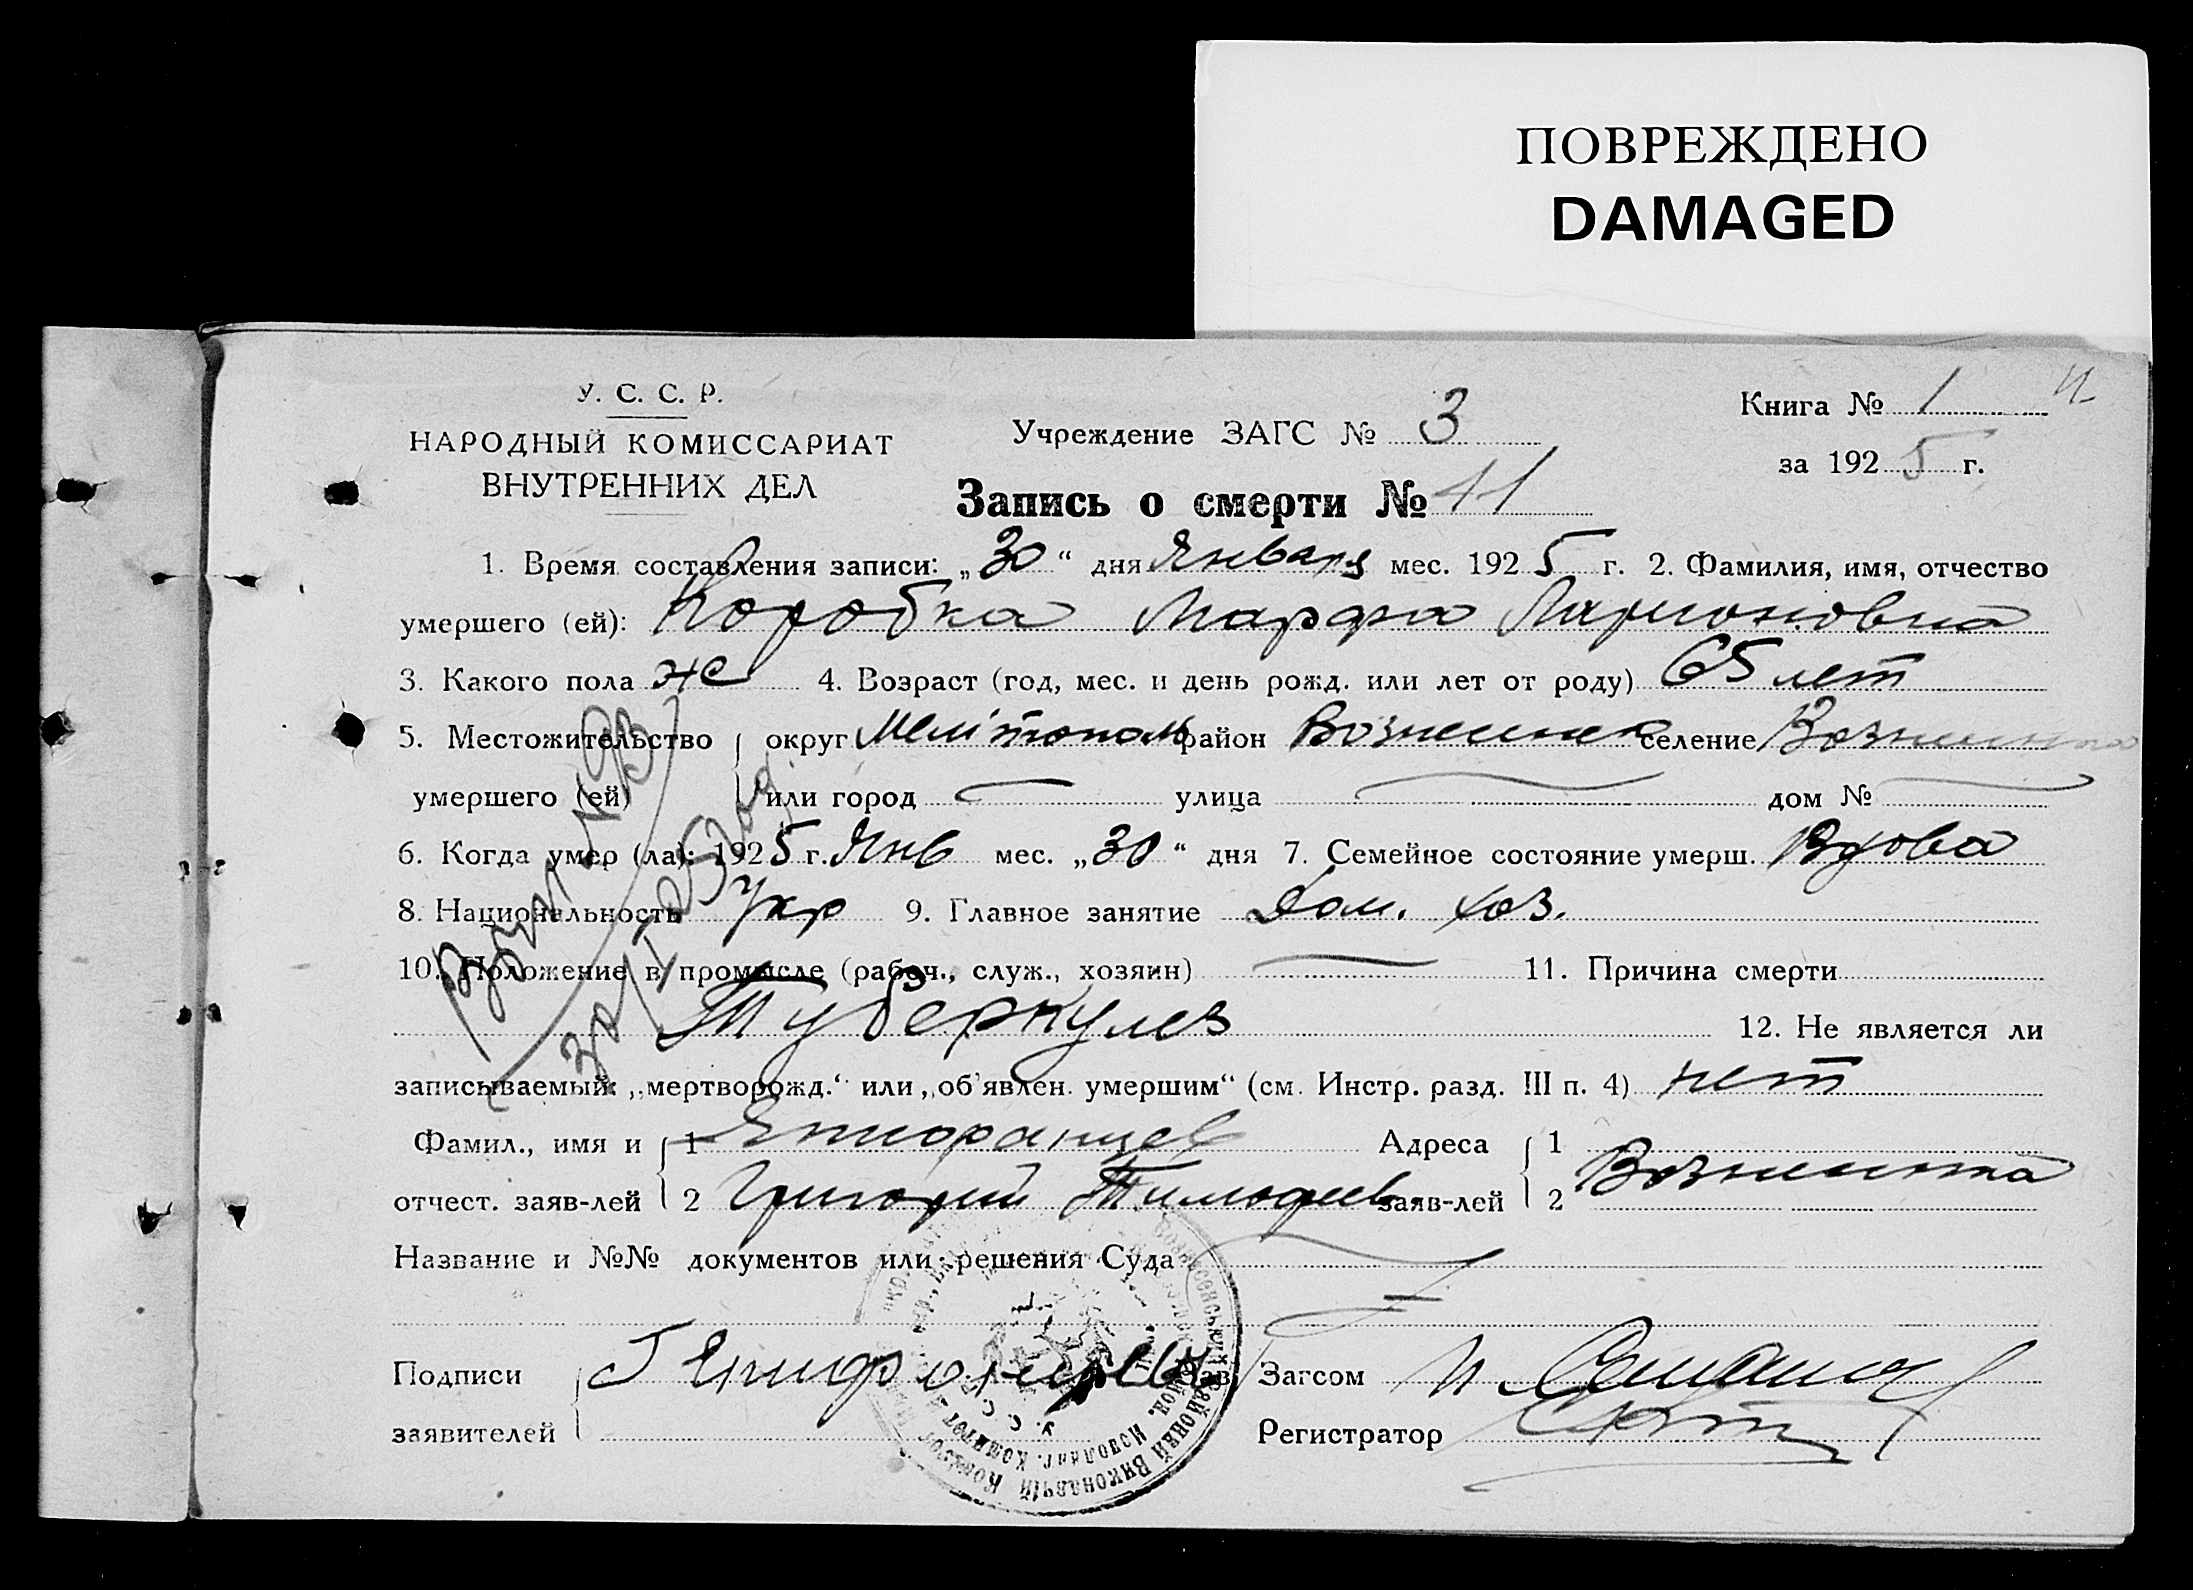 ПОВРЕЖДЕНО
DAMAGED
У. С. С. Р.
НАРОДНЫЙ КОМИССАРИАТ
ВНУТРЕННИХ ДЕЛ
Учреждение ЗАГС № 3
Книга № 1
за 1925 г.
Запись о смерти № 11
1. Время составления записи: „30“ дня Января мес. 1925 г. 2. Фамилия, имя, отчество
умершего (ей): Коробка Марфа Ларионовна
3. Какого пола ж 4. Возраст (год, мес. и день рожд. или лет от роду) 65 лет
5. Местожительство округ Мелитополь район Вознесенка селение Вознесенка
умершего (ей) или город — улица — дом № —
6. Когда умер (ла): 1925 г. Янв мес. „30“ дня 7. Семейное состояние умерш. Вдова
8. Национальность Укр 9. Главное занятие Дом. хоз.
10. Положение в промысле (рабоч., служ., хозяин) — 11. Причина смерти
Туберкулез 12. Не является ли
записываемый: „мертворожд.“ или „об'явлен. умершим“ (см. Инстр. разд. III п. 4) нет
Фамил., имя и 1 Епифанцев Адреса 1
отчест. заяв-лей 2 Григорий Тимофеев заяв-лей 2 Вознесенка
Название и №№ документов или решения Суда
Подписи Г Епифанцев Зав. Загсом
заявителей Регистратор